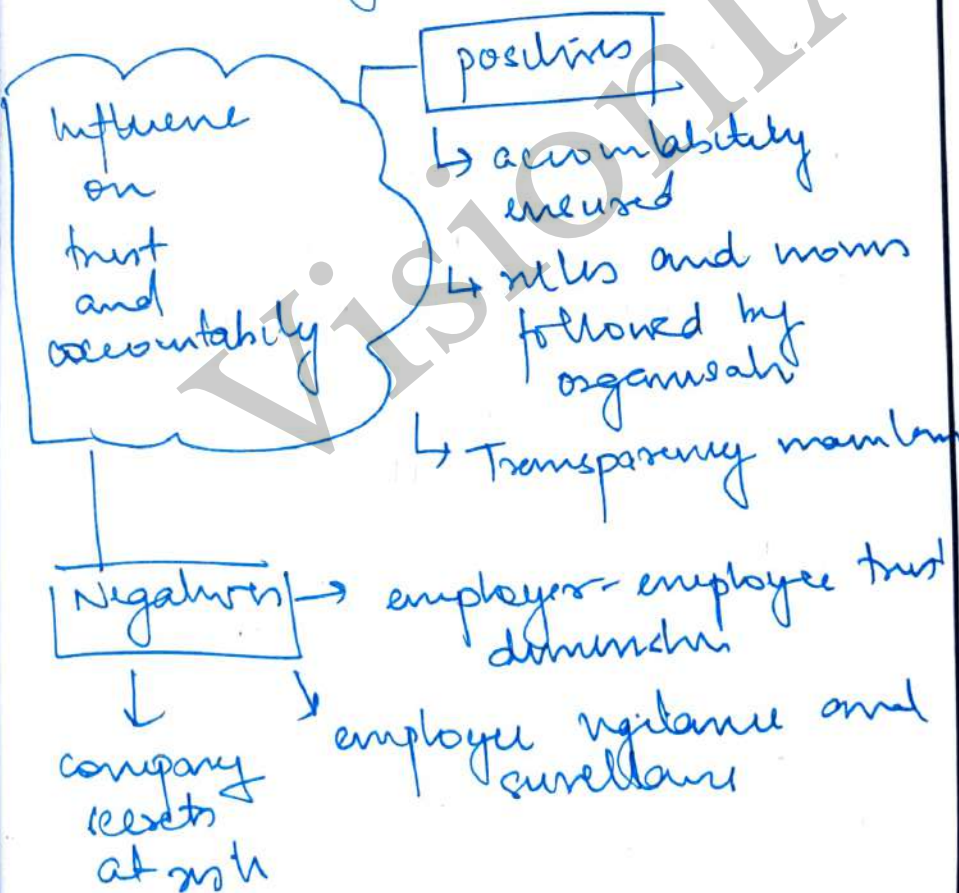 Influence
on
trust
and
accountability
positives
↳ accountability
ensured
↳ rules and norms
followed by
organisatn
↳ Transparency maintan
Negatives → employer-employee trust
diminshs
employee vigilance and
survellance
company
secrets
at risk
VisionIA